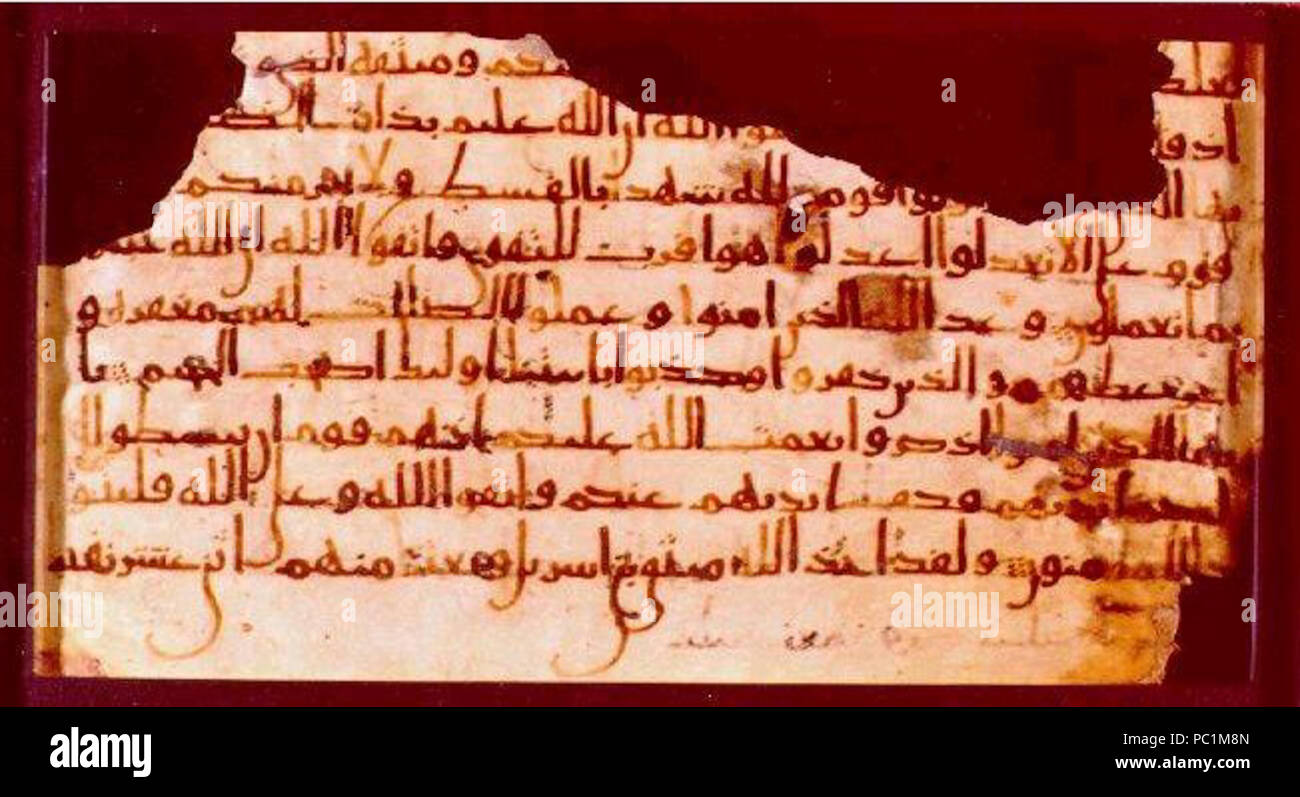 وميثقه الذي
اذ ق الله ان الله عليم بذات الصد
يها الذ قومين لله شهدا بالقسط ولا يجرمنكم
قوم على الا تعدلوا اعدلوا هو اقرب للتقوى واتقوا الله ان الله خبير
بما تعملون وعد الله الذين امنوا وعملوا الصلحت لهم مغفرة و
اجر عظيم والذين كفروا وكذبوا بايتنا اوليك اصحب الجحيم يا
يها الذين امنوا اذكروا نعمت الله عليكم اذ هم قوم ان يبسطوا ا
ليكم ايديهم فكف ايديهم عنكم واتقوا الله وعلى الله فليتو
كل المومنون ولقد اخذ الله ميثق بني اسريل وبعثنا منهم اثني عشر نقيبا
alamy
Image ID: PC1M8N
www.alamy.com